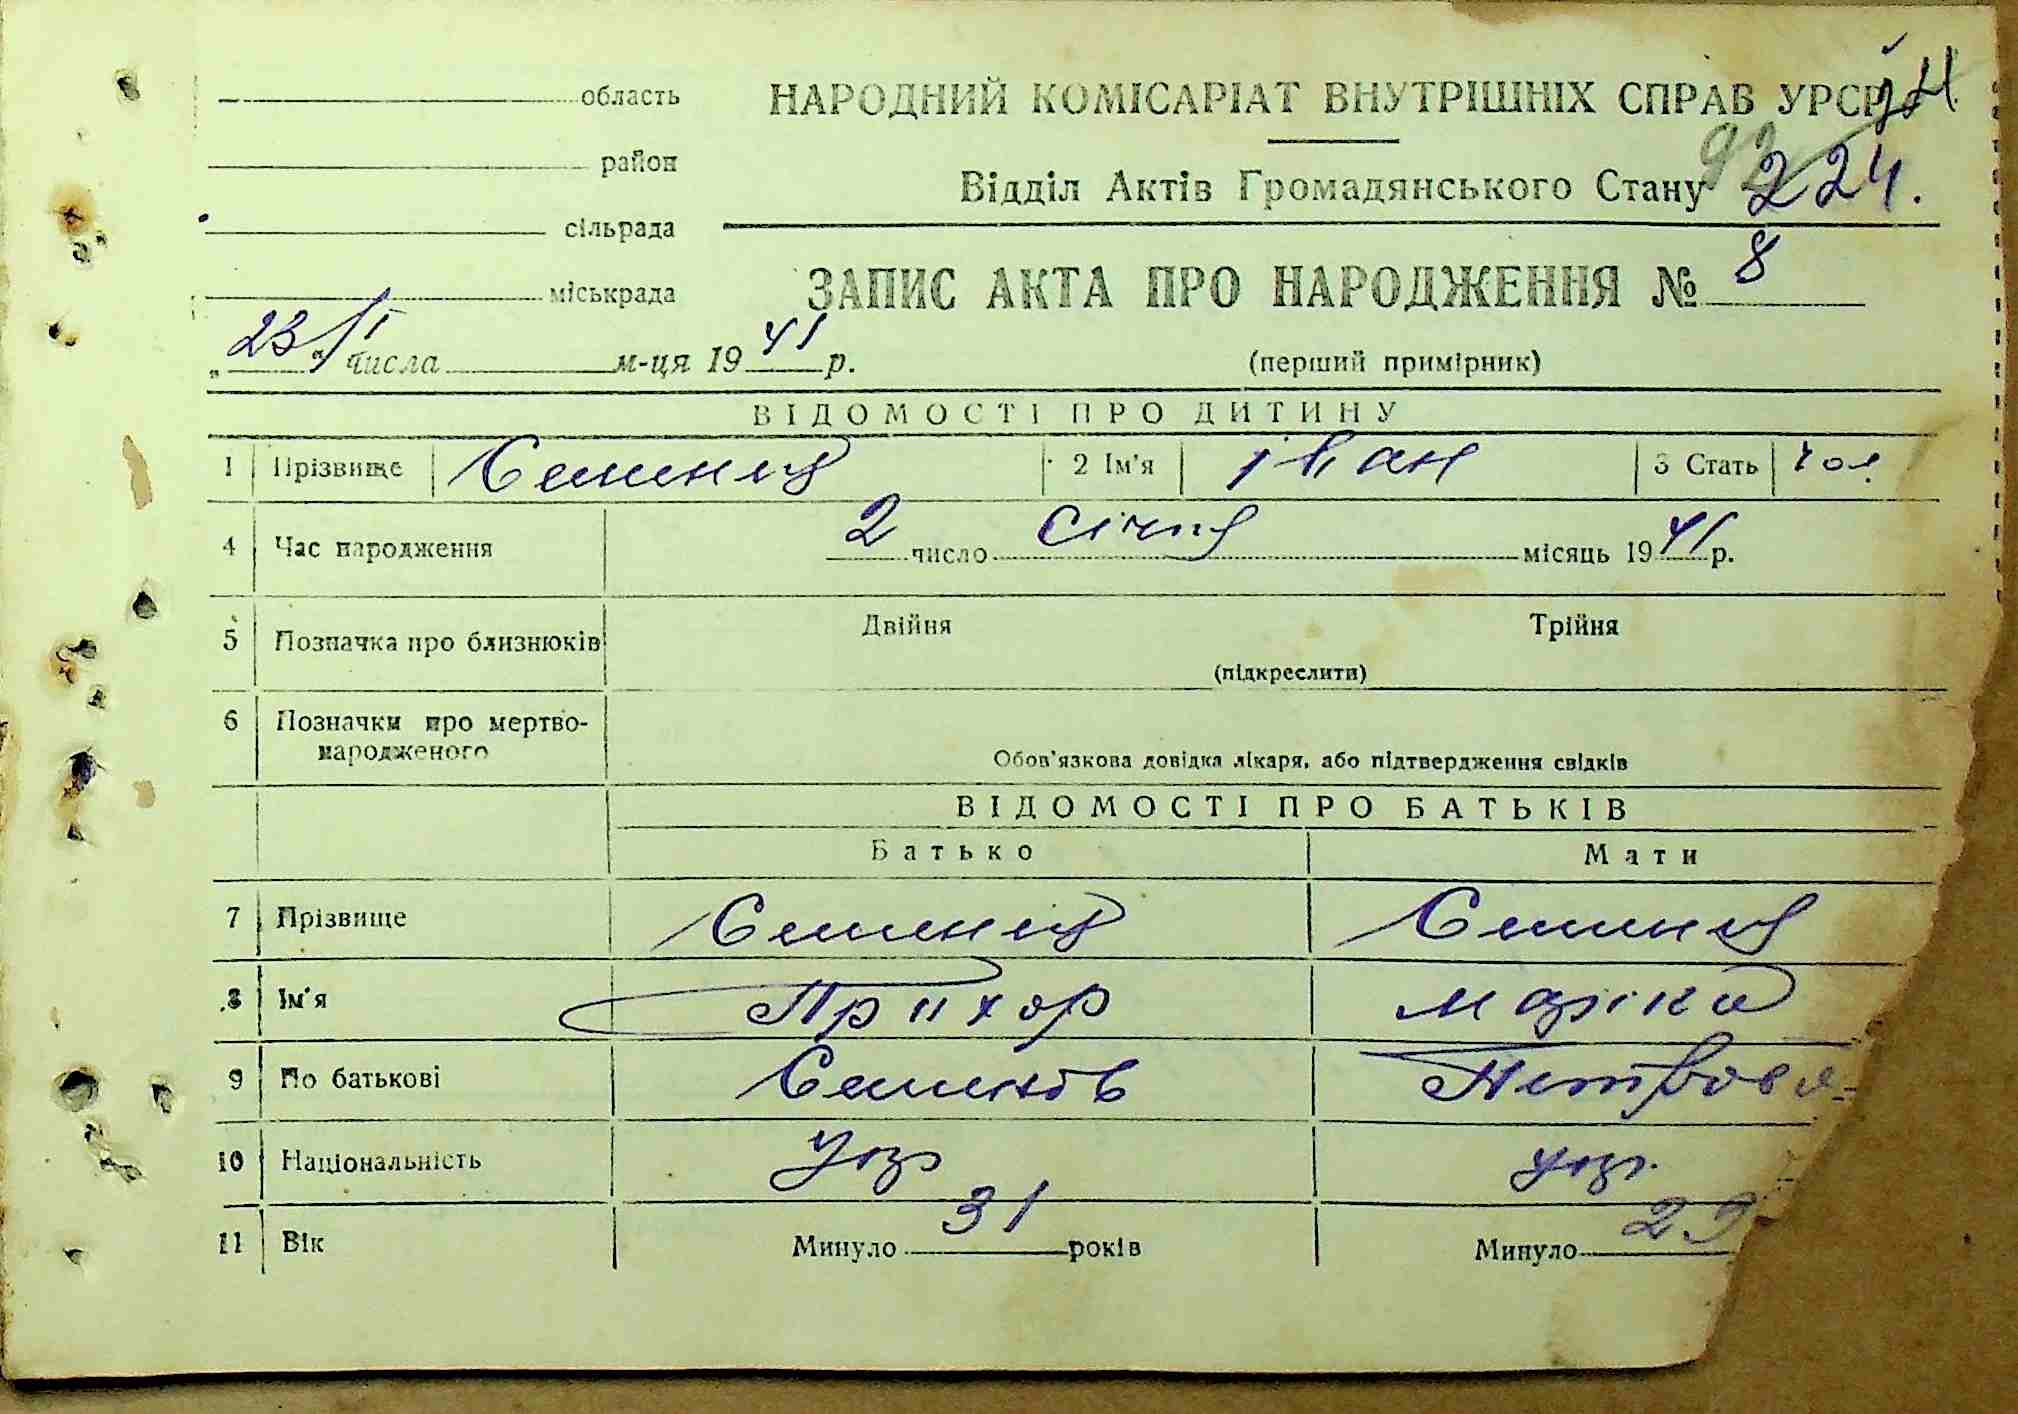 область
НАРОДНИЙ КОМІСАРІАТ ВНУТРІШНІХ СПРАВ УРСР
район
92
Відділ Актів Громадянського Стану 224.
сільрада
міськрада
ЗАПИС АКТА ПРО НАРОДЖЕННЯ № 8
„23/I“ числа м-ця 1941 р.
(перший примірник)
ВІДОМОСТІ ПРО ДИТИНУ
1 Прізвище Семенец 2 Ім'я іван 3 Стать чол.
4 Час народження 2 число січня місяць 1941 р.
5 Позначка про близнюків Двійня Трійня
(підкреслити)
6 Позначки про мертво-
народженого
Обов'язкова довідка лікаря, або підтвердження свідків
ВІДОМОСТІ ПРО БАТЬКІВ
Батько Мати
7 Прізвище Семенец Семенец
8 Ім'я Прихор
9 По батькові Семенов
10 Національність Укр укр.
11 Вік Минуло 31 років Минуло 29